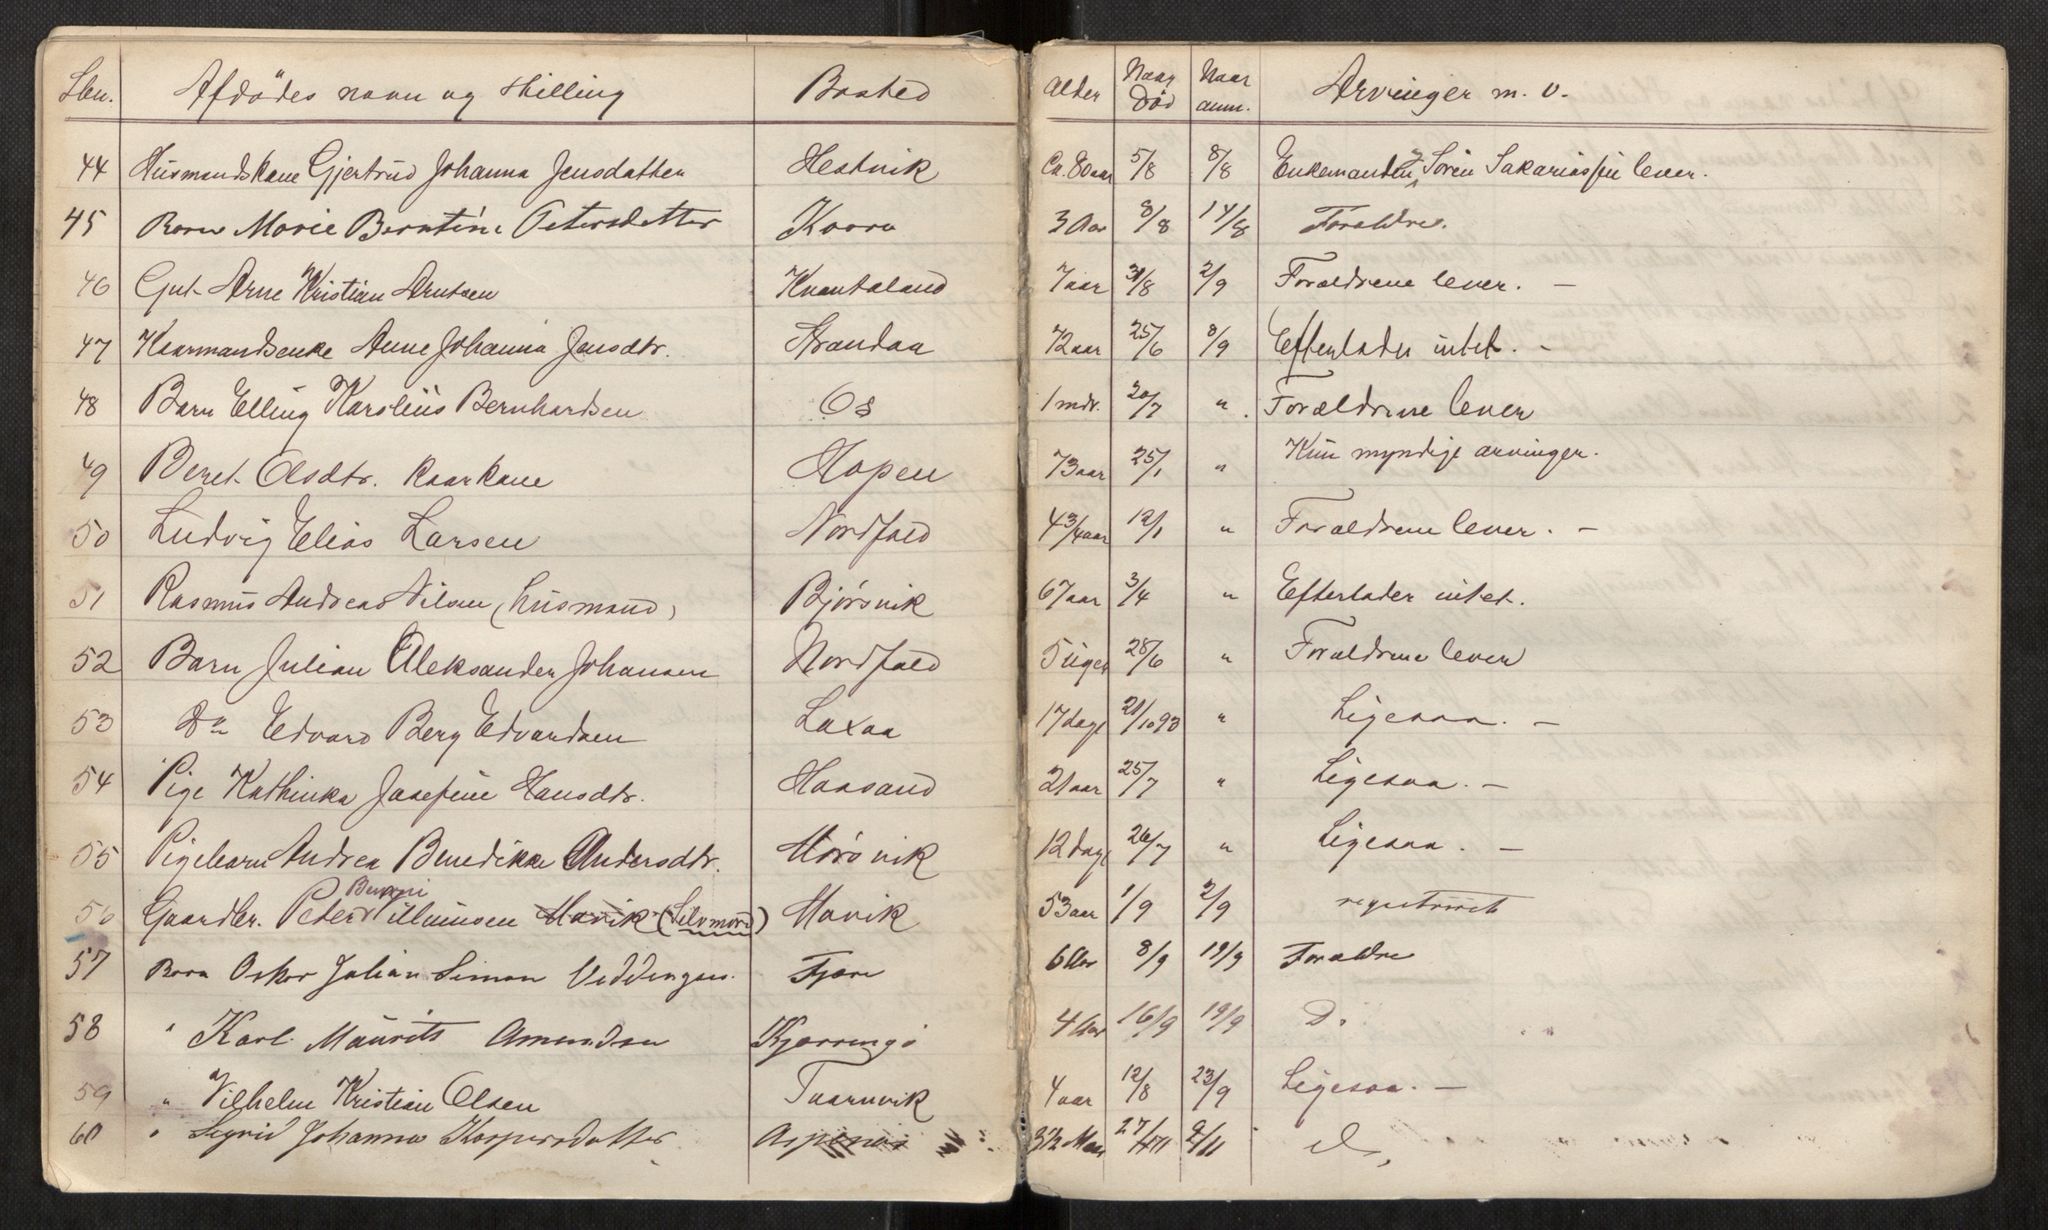 Lbn. Afdødes navn og stilling Bosted Alder Naar død Naar anm. Arvinger m. v.
44 Husmandskone Gjertrud Johanna Jensdatter Hestvik Ca. 80 aar 5/8 8/8 Enkemanden Sørin Sakariassen lever.
45 Barn Marie Berntine Petersdatter 3 Aar 8/8 14/8 Forældre.
46 Gut Arne Kristian Arntsen Kvantoland 7 aar 31/8 2/9 Forældrene lever. —
47 Kaarmandsenke Anne Johanna Jensdtr. Strandaa 72 aar 25/6 8/9 Efterlader intet. —
48 Barn Elling Karolius Bernhardsen Os 1 mdr. 20/7 " Forældrene lever
49 Beret Olsdtr. Kaarkone Hopen 73 aar 25/1 " Kun myndige arvinger.
50 Ludvig Elias Larsen Nordfold 4 3/4 aar 12/1 " Forældrene lever. —
51 Rasmus Andreas Nilsen (husmand) Bjørsvik 67 aar 3/4 " Efterlader intet.
52 Barn Julian Aleksander Johansen Nordfold 5 uger 28/6 " Forældrene lever
53 Do Edvard Berg Edvardsen Laxaa 17 dage 21/10 93 " Ligesaa. —
54 Pige Kathinka Josefine Hansdtr. Haasand 21 aar 25/7 " Ligesaa. —
55 Pigebarn Andrea Benedikke Andersdtr. Mørsvik 12 dage 26/7 " Ligesaa. —
56 Gaardbr. Peter Benoni Villumsen Mavik (Selvmord) Mavik 53 aar 1/9 2/9 registreret
57 Barn Oskar Julian Simon Fjære 6 Aar 8/9 19/9 Forældre
58 " Karl Maurits Amundsen Kjerringø 4 Aar 16/9 19/9 D.
59 " Vilhelm Kristian Olsen Taarnvik 4 aar 12/8 23/9 Ligesaa. —
60 " Sigrid Johanna Kaspersdatter 3 1/2 Maan 27/11 2/11 d.